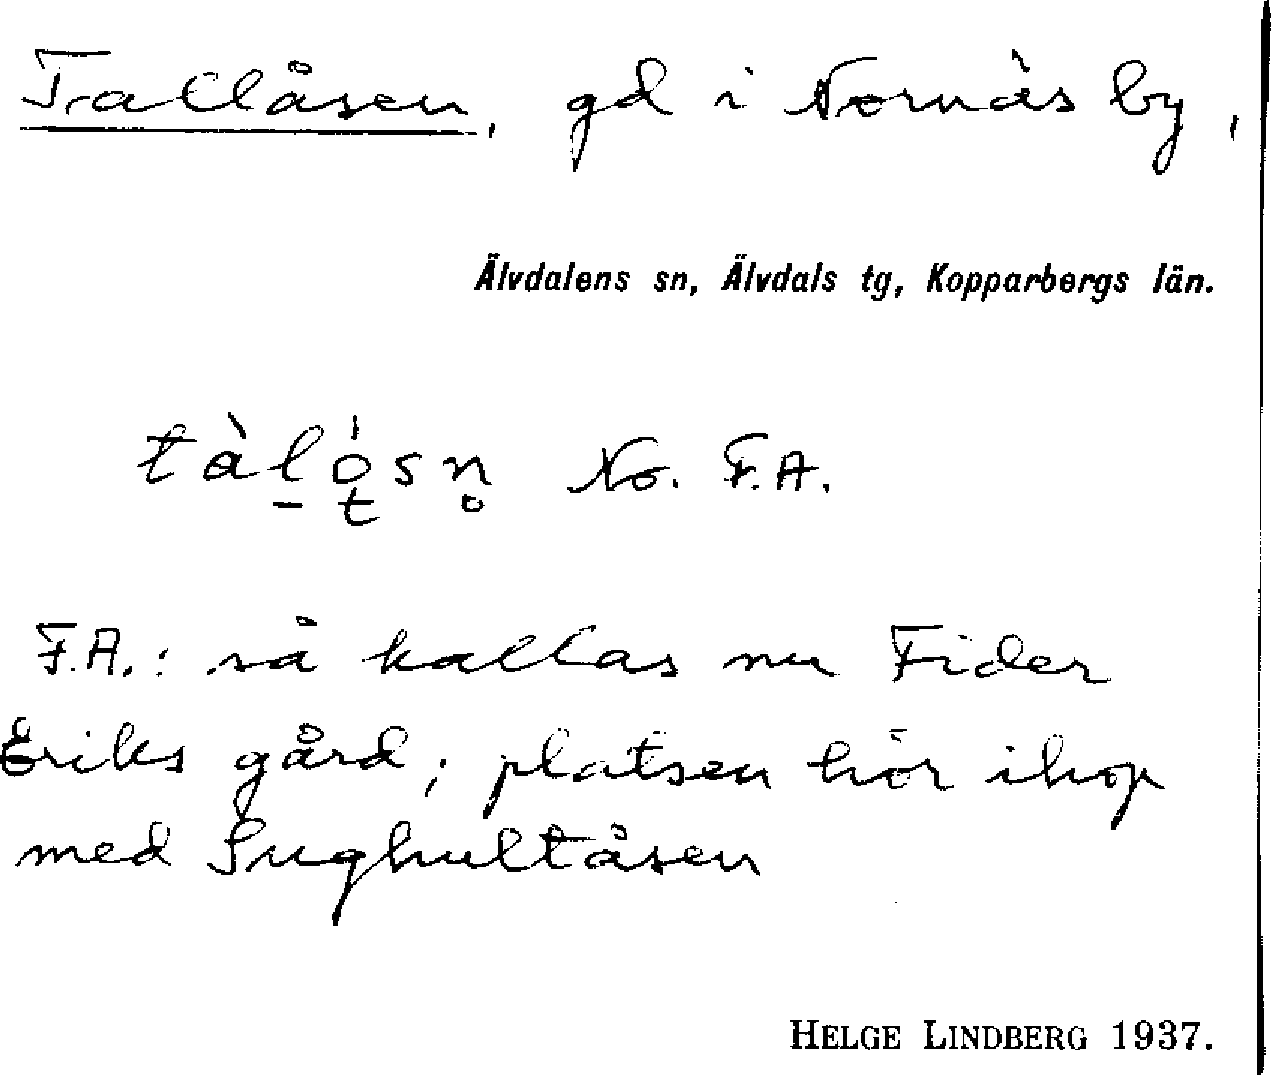 Tallåsen, gd i Nornäs by,
Älvdalens sn, Älvdals tg, Kopparbergs län.
tàlósn No. F.A.
F.A.: så kallas nu Fider
Eriks gård; platsen hör ihop
med Sughultåsen
HELGE LINDBERG 1937.